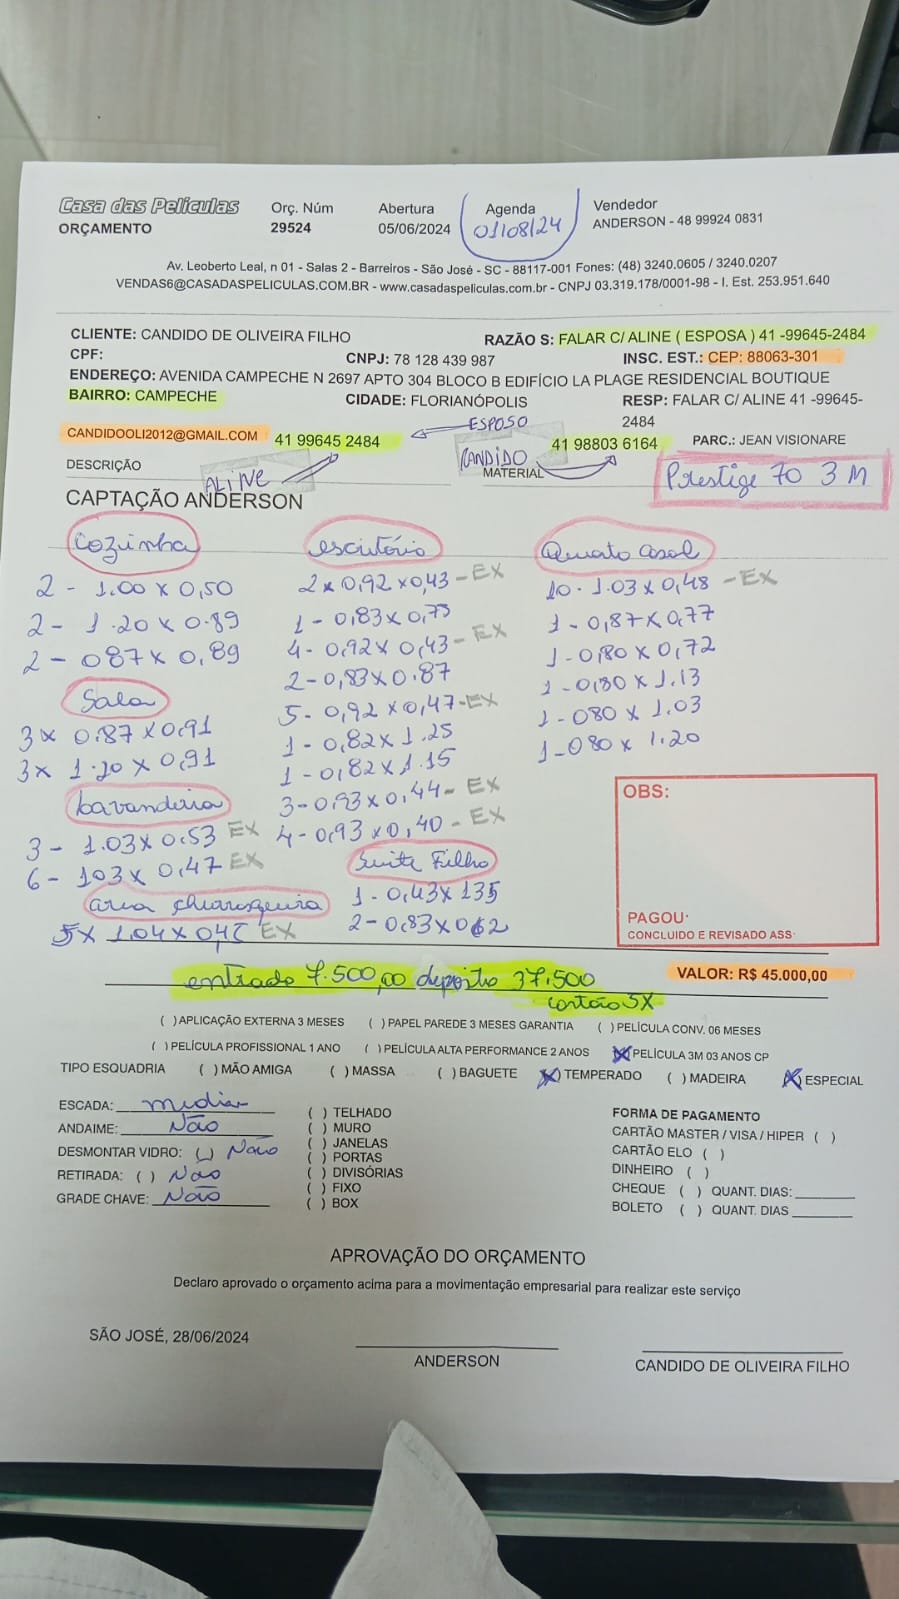 Casa das Películas Orç. Núm Abertura Agenda Vendedor
ORÇAMENTO 29524 05/06/2024 01/08/24 ANDERSON - 48 99924 0831
Av. Leoberto Leal, n 01 - Salas 2 - Barreiros - São José - SC - 88117-001 Fones: (48) 3240.0605 / 3240.0207
VENDAS6@CASADASPELICULAS.COM.BR - www.casadaspeliculas.com.br - CNPJ 03.319.178/0001-98 - I. Est. 253.951.640
CLIENTE: CANDIDO DE OLIVEIRA FILHO RAZÃO S: FALAR C/ ALINE ( ESPOSA ) 41 -99645-2484
CPF: CNPJ: 78 128 439 987 INSC. EST.: CEP: 88063-301
ENDEREÇO: AVENIDA CAMPECHE N 2697 APTO 304 BLOCO B EDIFÍCIO LA PLAGE RESIDENCIAL BOUTIQUE
BAIRRO: CAMPECHE CIDADE: FLORIANÓPOLIS RESP: FALAR C/ ALINE 41 -99645-
2484
ESPOSO
CANDIDOOLI2012@GMAIL.COM 41 99645 2484 41 98803 6164 PARC.: JEAN VISIONARE
DESCRIÇÃO ALINE KANDIDO MATERIAL Prestige 70 3 M
CAPTAÇÃO ANDERSON
Cozinha
2 - 1.00 x 0,50
2 - 1.20 x 0.89
2 - 087 x 0,89
Sala
3 x 0.87 x 0,91
3 x 1.20 x 0,91
Lavanderia
3 - 1.03 x 0.53 EX
6 - 103 x 0,47 EX
area churrasqueira
5 x 1.04 x 0,45 EX
escritório
2 x 0,92 x 0,43 - EX
1 - 0,83 x 0,75
4 - 0,92 x 0,43 - EX
2 - 0,83 x 0.87
5 - 0,92 x 0,47 - EX
1 - 0,82 x 1.25
1 - 0,82 x 1.15
3 - 0,93 x 0,44 - EX
4 - 0,93 x 0,40 - EX
Suite Filho
1 - 0,43 x 135
2 - 0,83 x 062
Quarto Casal
10 - 1.03 x 0,48 - EX
1 - 0,87 x 0,77
1 - 0,80 x 0,72
1 - 0,80 x 1.13
1 - 080 x 1.03
1 - 080 x 1.20
OBS:
PAGOU:
CONCLUIDO E REVISADO ASS:
entrado 7.500,00 deposito 37.500 VALOR: R$ 45.000,00
cartão 5X
( ) APLICAÇÃO EXTERNA 3 MESES ( ) PAPEL PAREDE 3 MESES GARANTIA ( ) PELÍCULA CONV. 06 MESES
( ) PELÍCULA PROFISSIONAL 1 ANO ( ) PELÍCULA ALTA PERFORMANCE 2 ANOS (X) PELÍCULA 3M 03 ANOS CP
TIPO ESQUADRIA ( ) MÃO AMIGA ( ) MASSA ( ) BAGUETE (X) TEMPERADO ( ) MADEIRA (X) ESPECIAL
ESCADA: media
ANDAIME: Não
DESMONTAR VIDRO: ( ) Não
RETIRADA: ( ) Não
GRADE CHAVE: Não
( ) TELHADO
( ) MURO
( ) JANELAS
( ) PORTAS
( ) DIVISÓRIAS
( ) FIXO
( ) BOX
FORMA DE PAGAMENTO
CARTÃO MASTER / VISA / HIPER ( )
CARTÃO ELO ( )
DINHEIRO ( )
CHEQUE ( ) QUANT. DIAS:
BOLETO ( ) QUANT. DIAS
APROVAÇÃO DO ORÇAMENTO
Declaro aprovado o orçamento acima para a movimentação empresarial para realizar este serviço
SÃO JOSÉ, 28/06/2024
ANDERSON CANDIDO DE OLIVEIRA FILHO